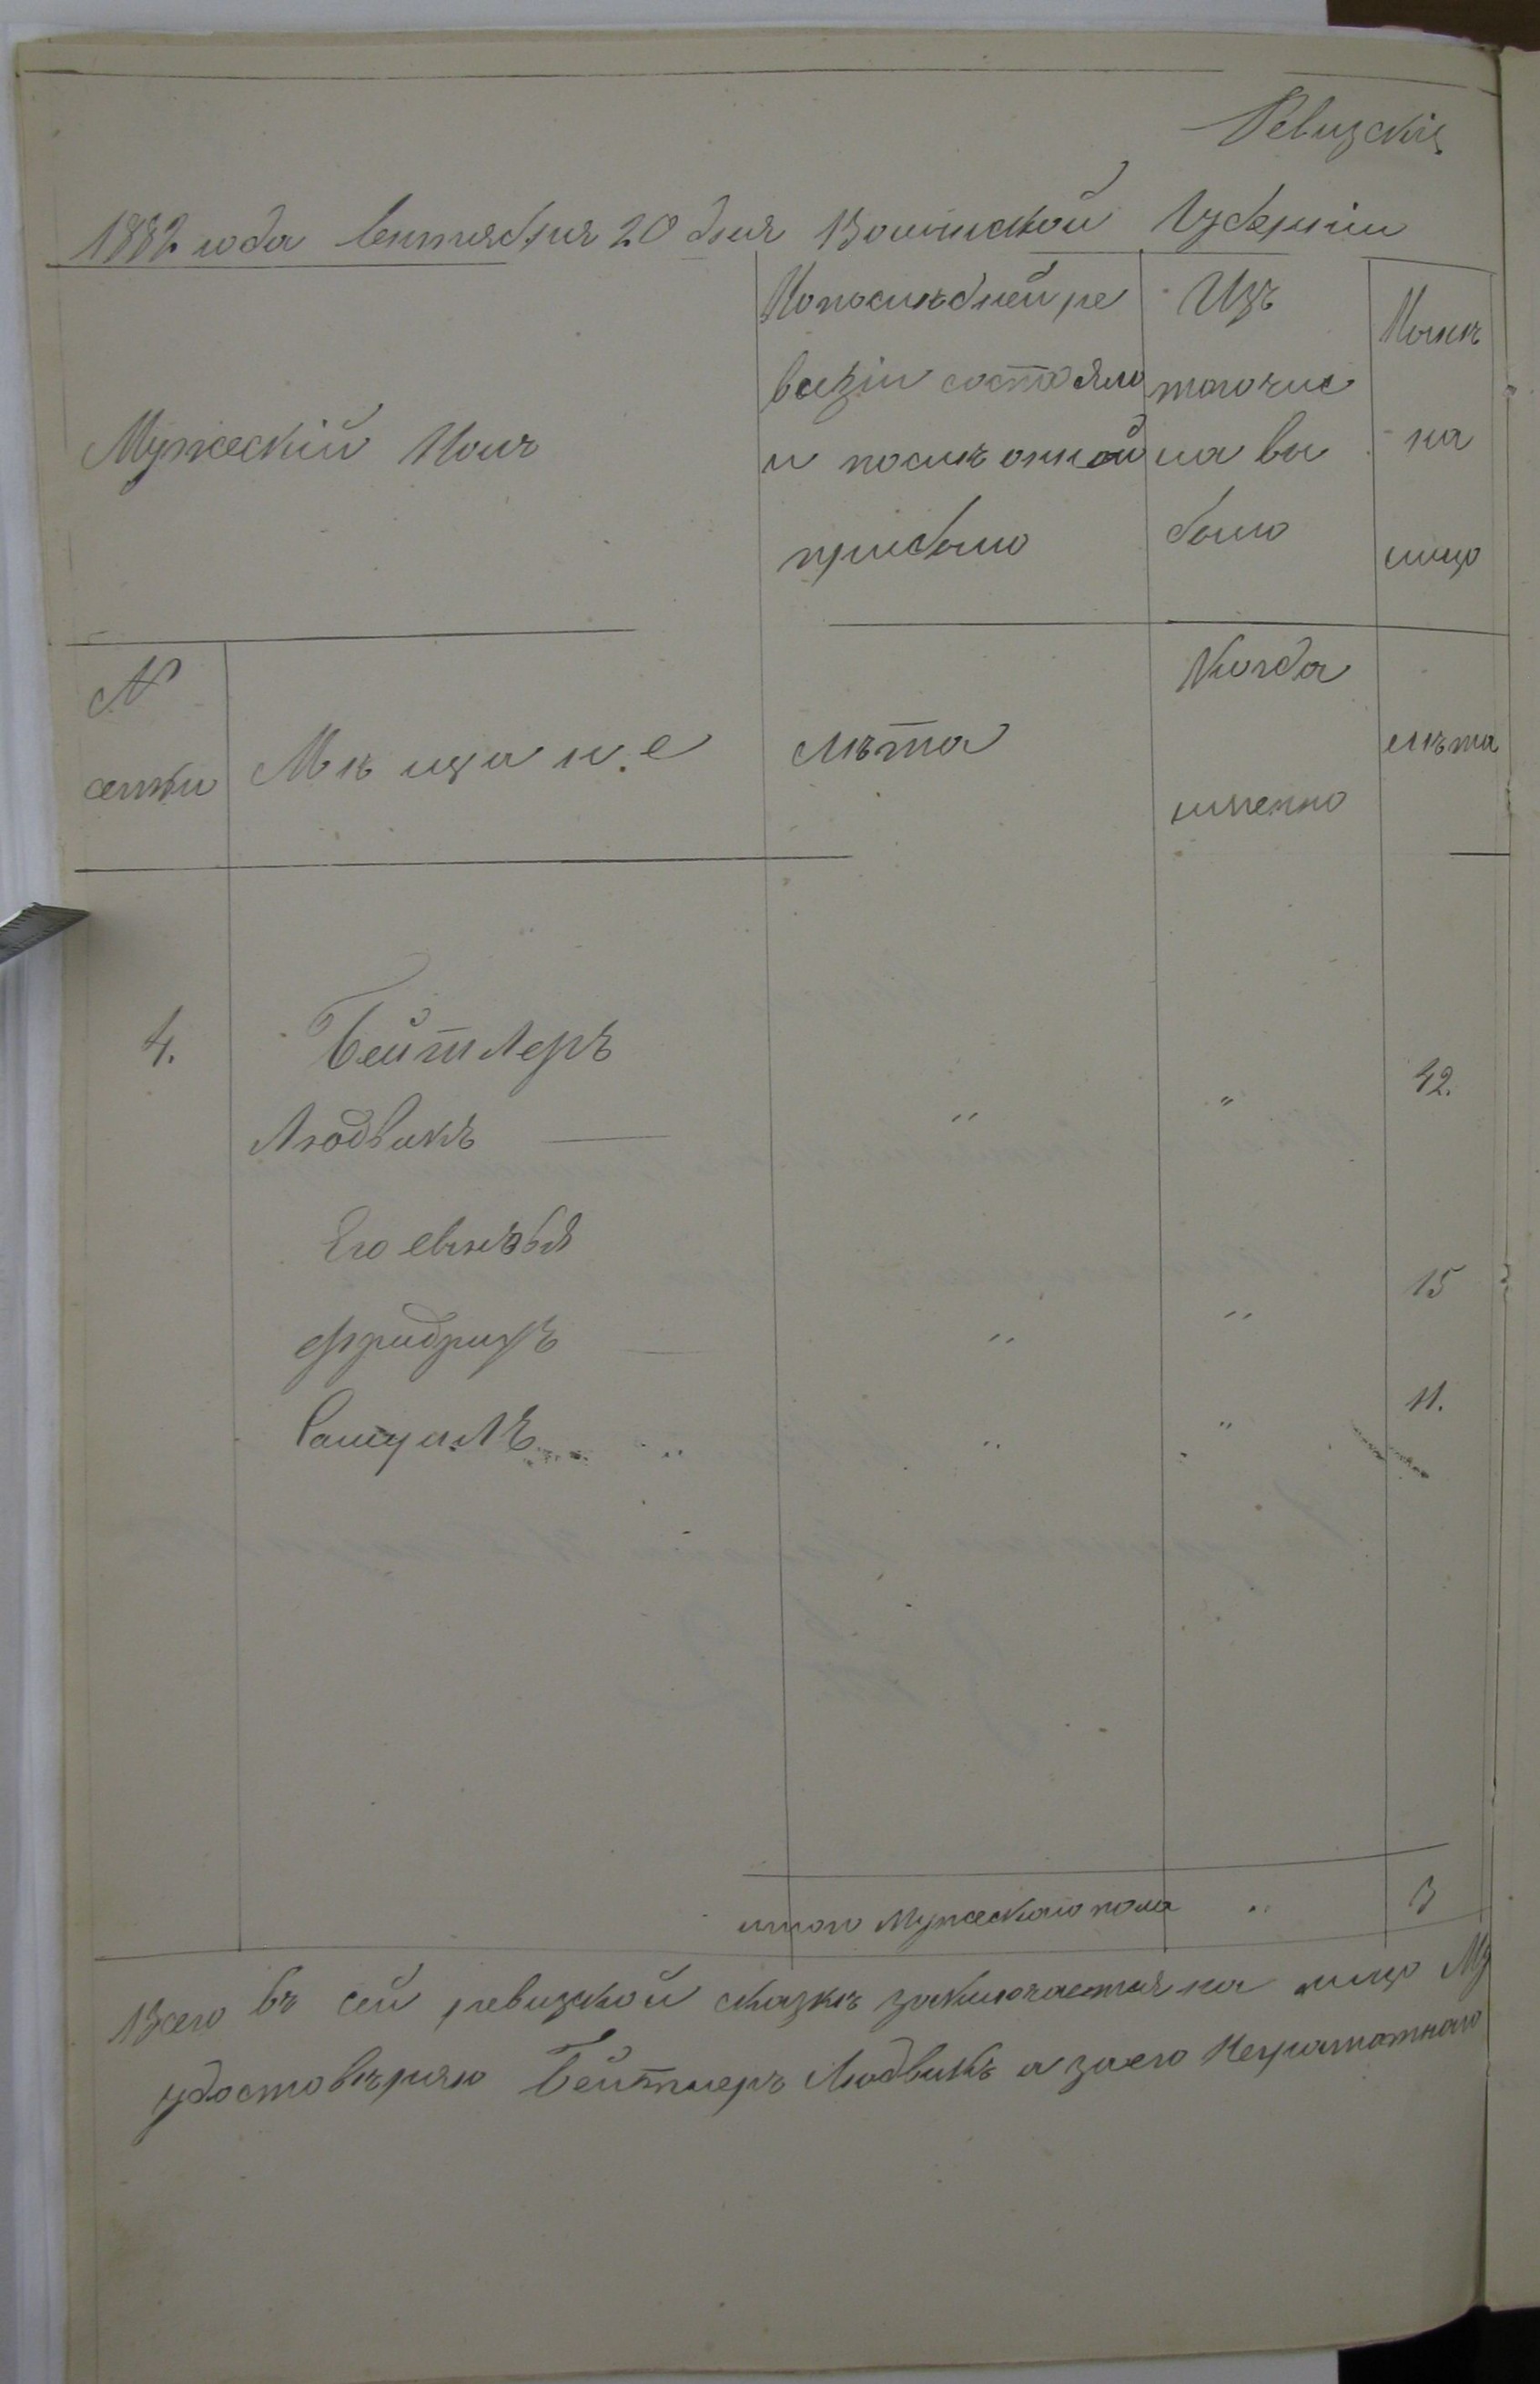 Ревизскіе
1882 года Сентября 20 дня Волынской Губерніи
Мужескій Полъ
По послѣдней ре
визіи состояло
и послѣ оной
прибыло
Изъ
того чис
ла вы
было
Нынѣ
на
лицо
№
семьи
Мѣщане
Лѣта
Когда
именно
Лѣта
4.
Бейтлеръ
Людвикъ — " " 42.
Его сыновья
Фридрихъ — " " 15
Самуилъ " " " 11.
итого Мужескаго пола " 3
Всего въ сей ревизской сказкѣ заключается на лицо Му
удостовѣряю Бейтлеръ Людвикъ а за его Неграмотнаго